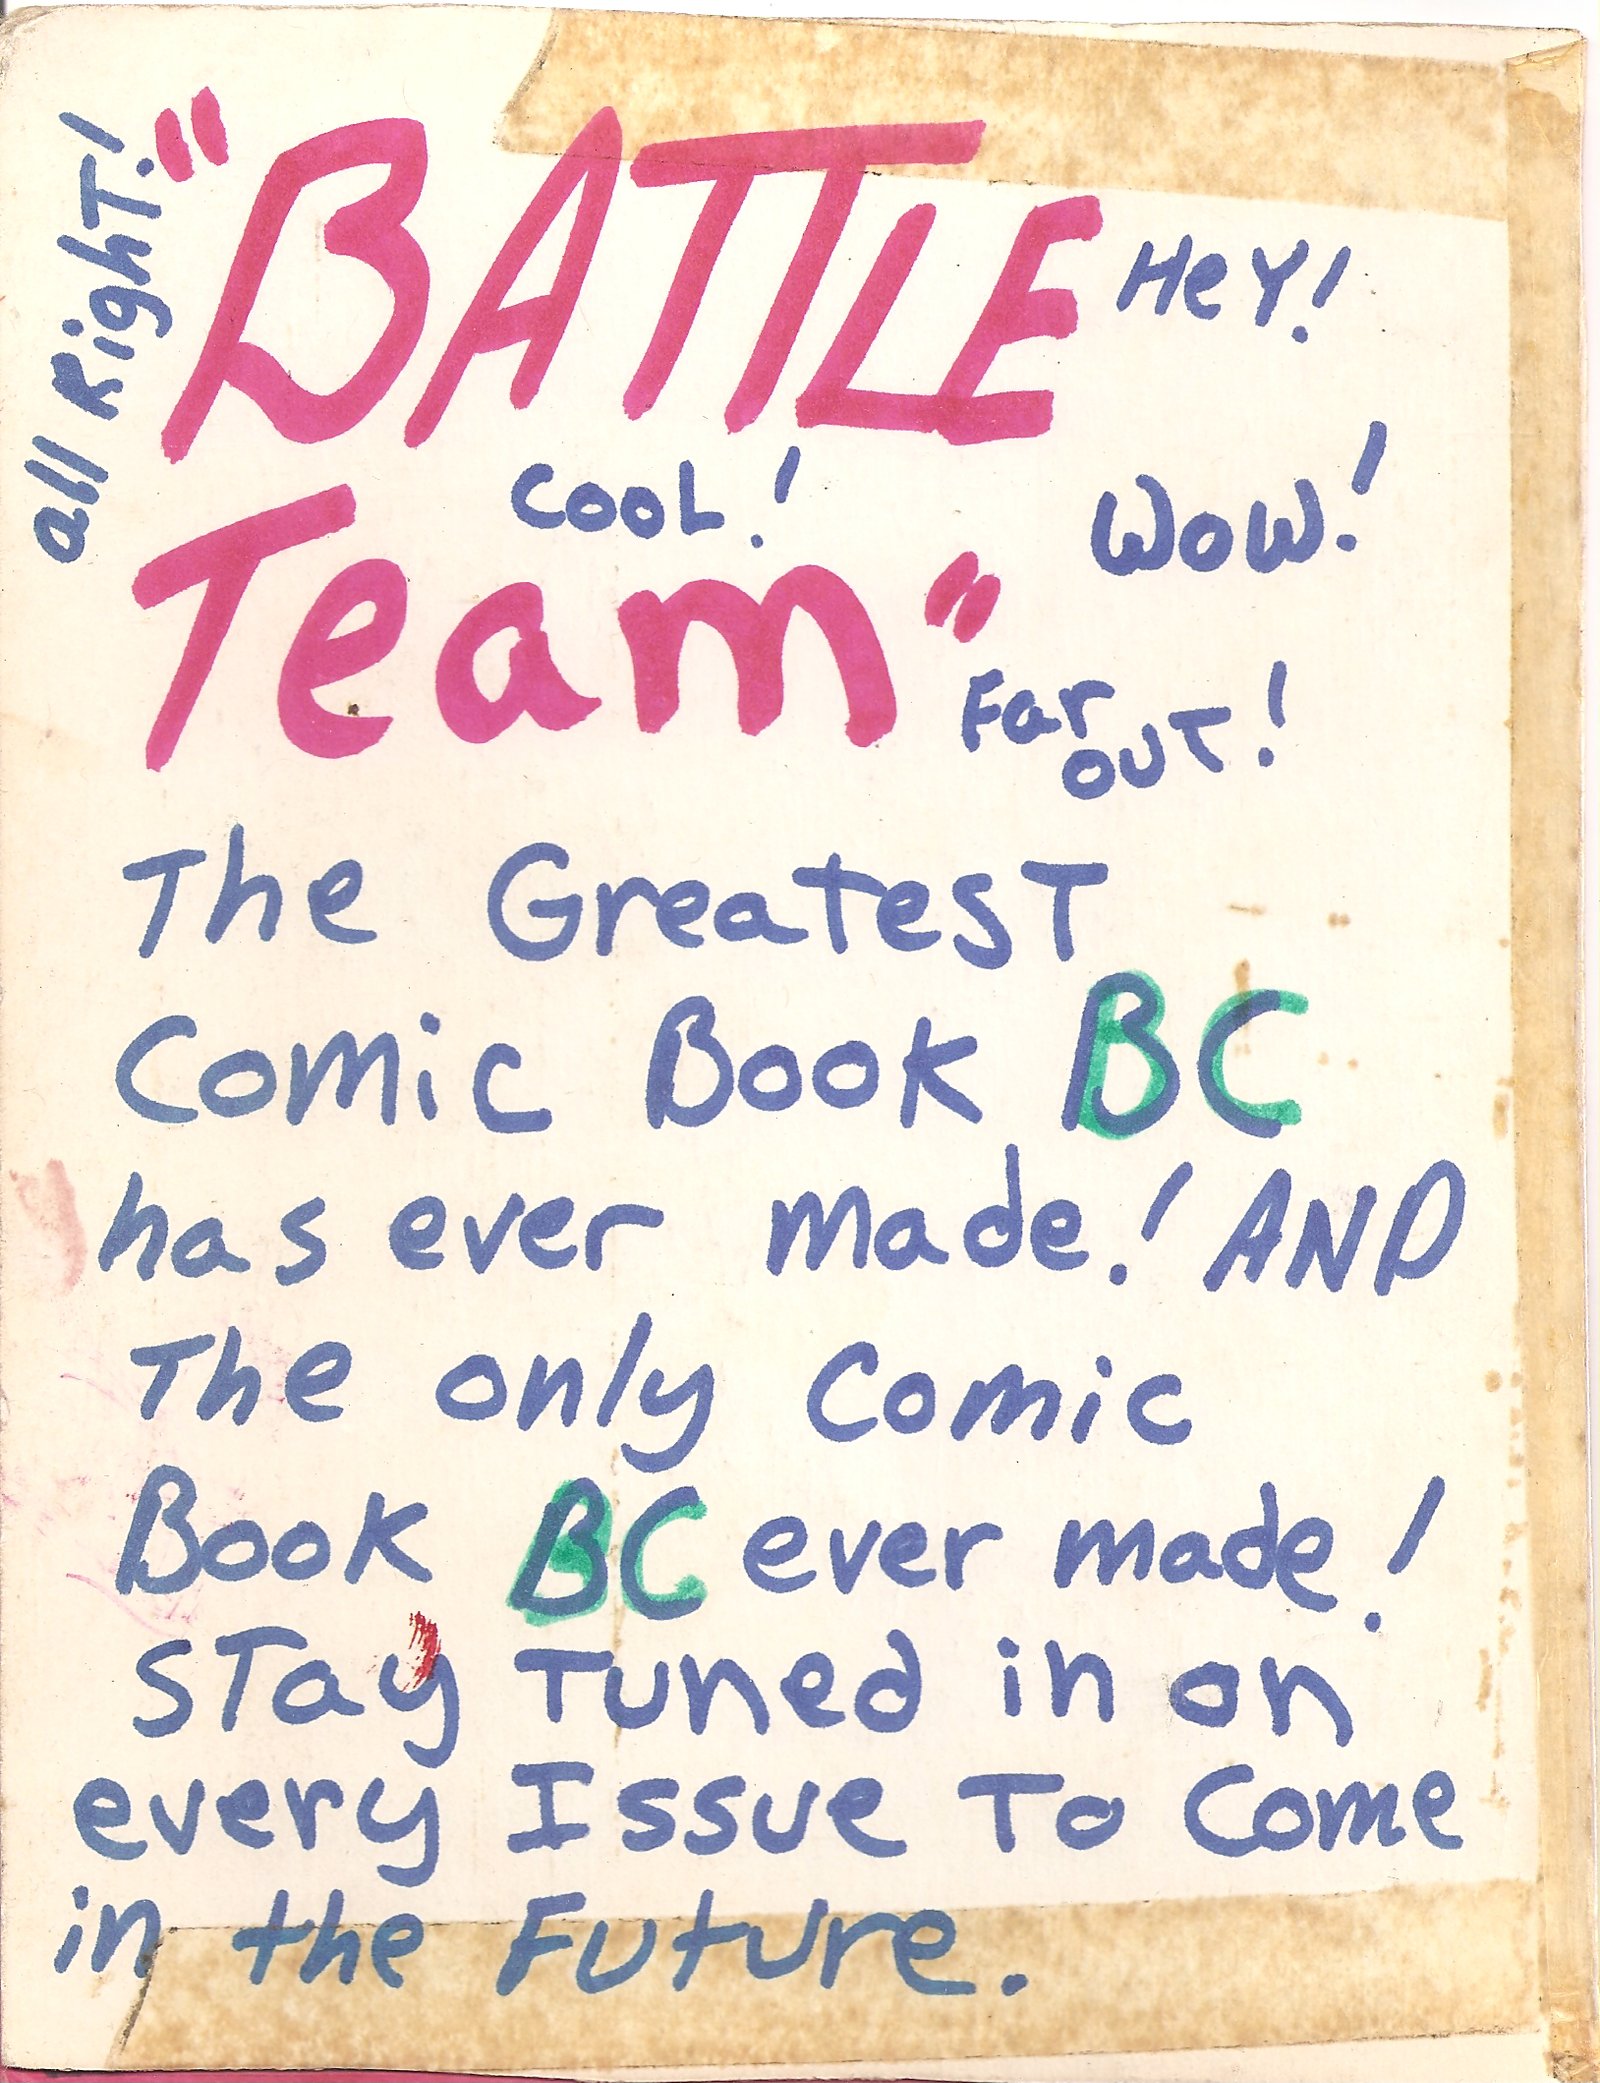 all Right!
"BATTLE
HeY!
cooL!
WoW!
Team"
Far
OUT!
The GreatesT
Comic Book BC
has ever made! AND
The only Comic
Book BC ever made!
STay Tuned in on
every Issue To Come
in the Future.